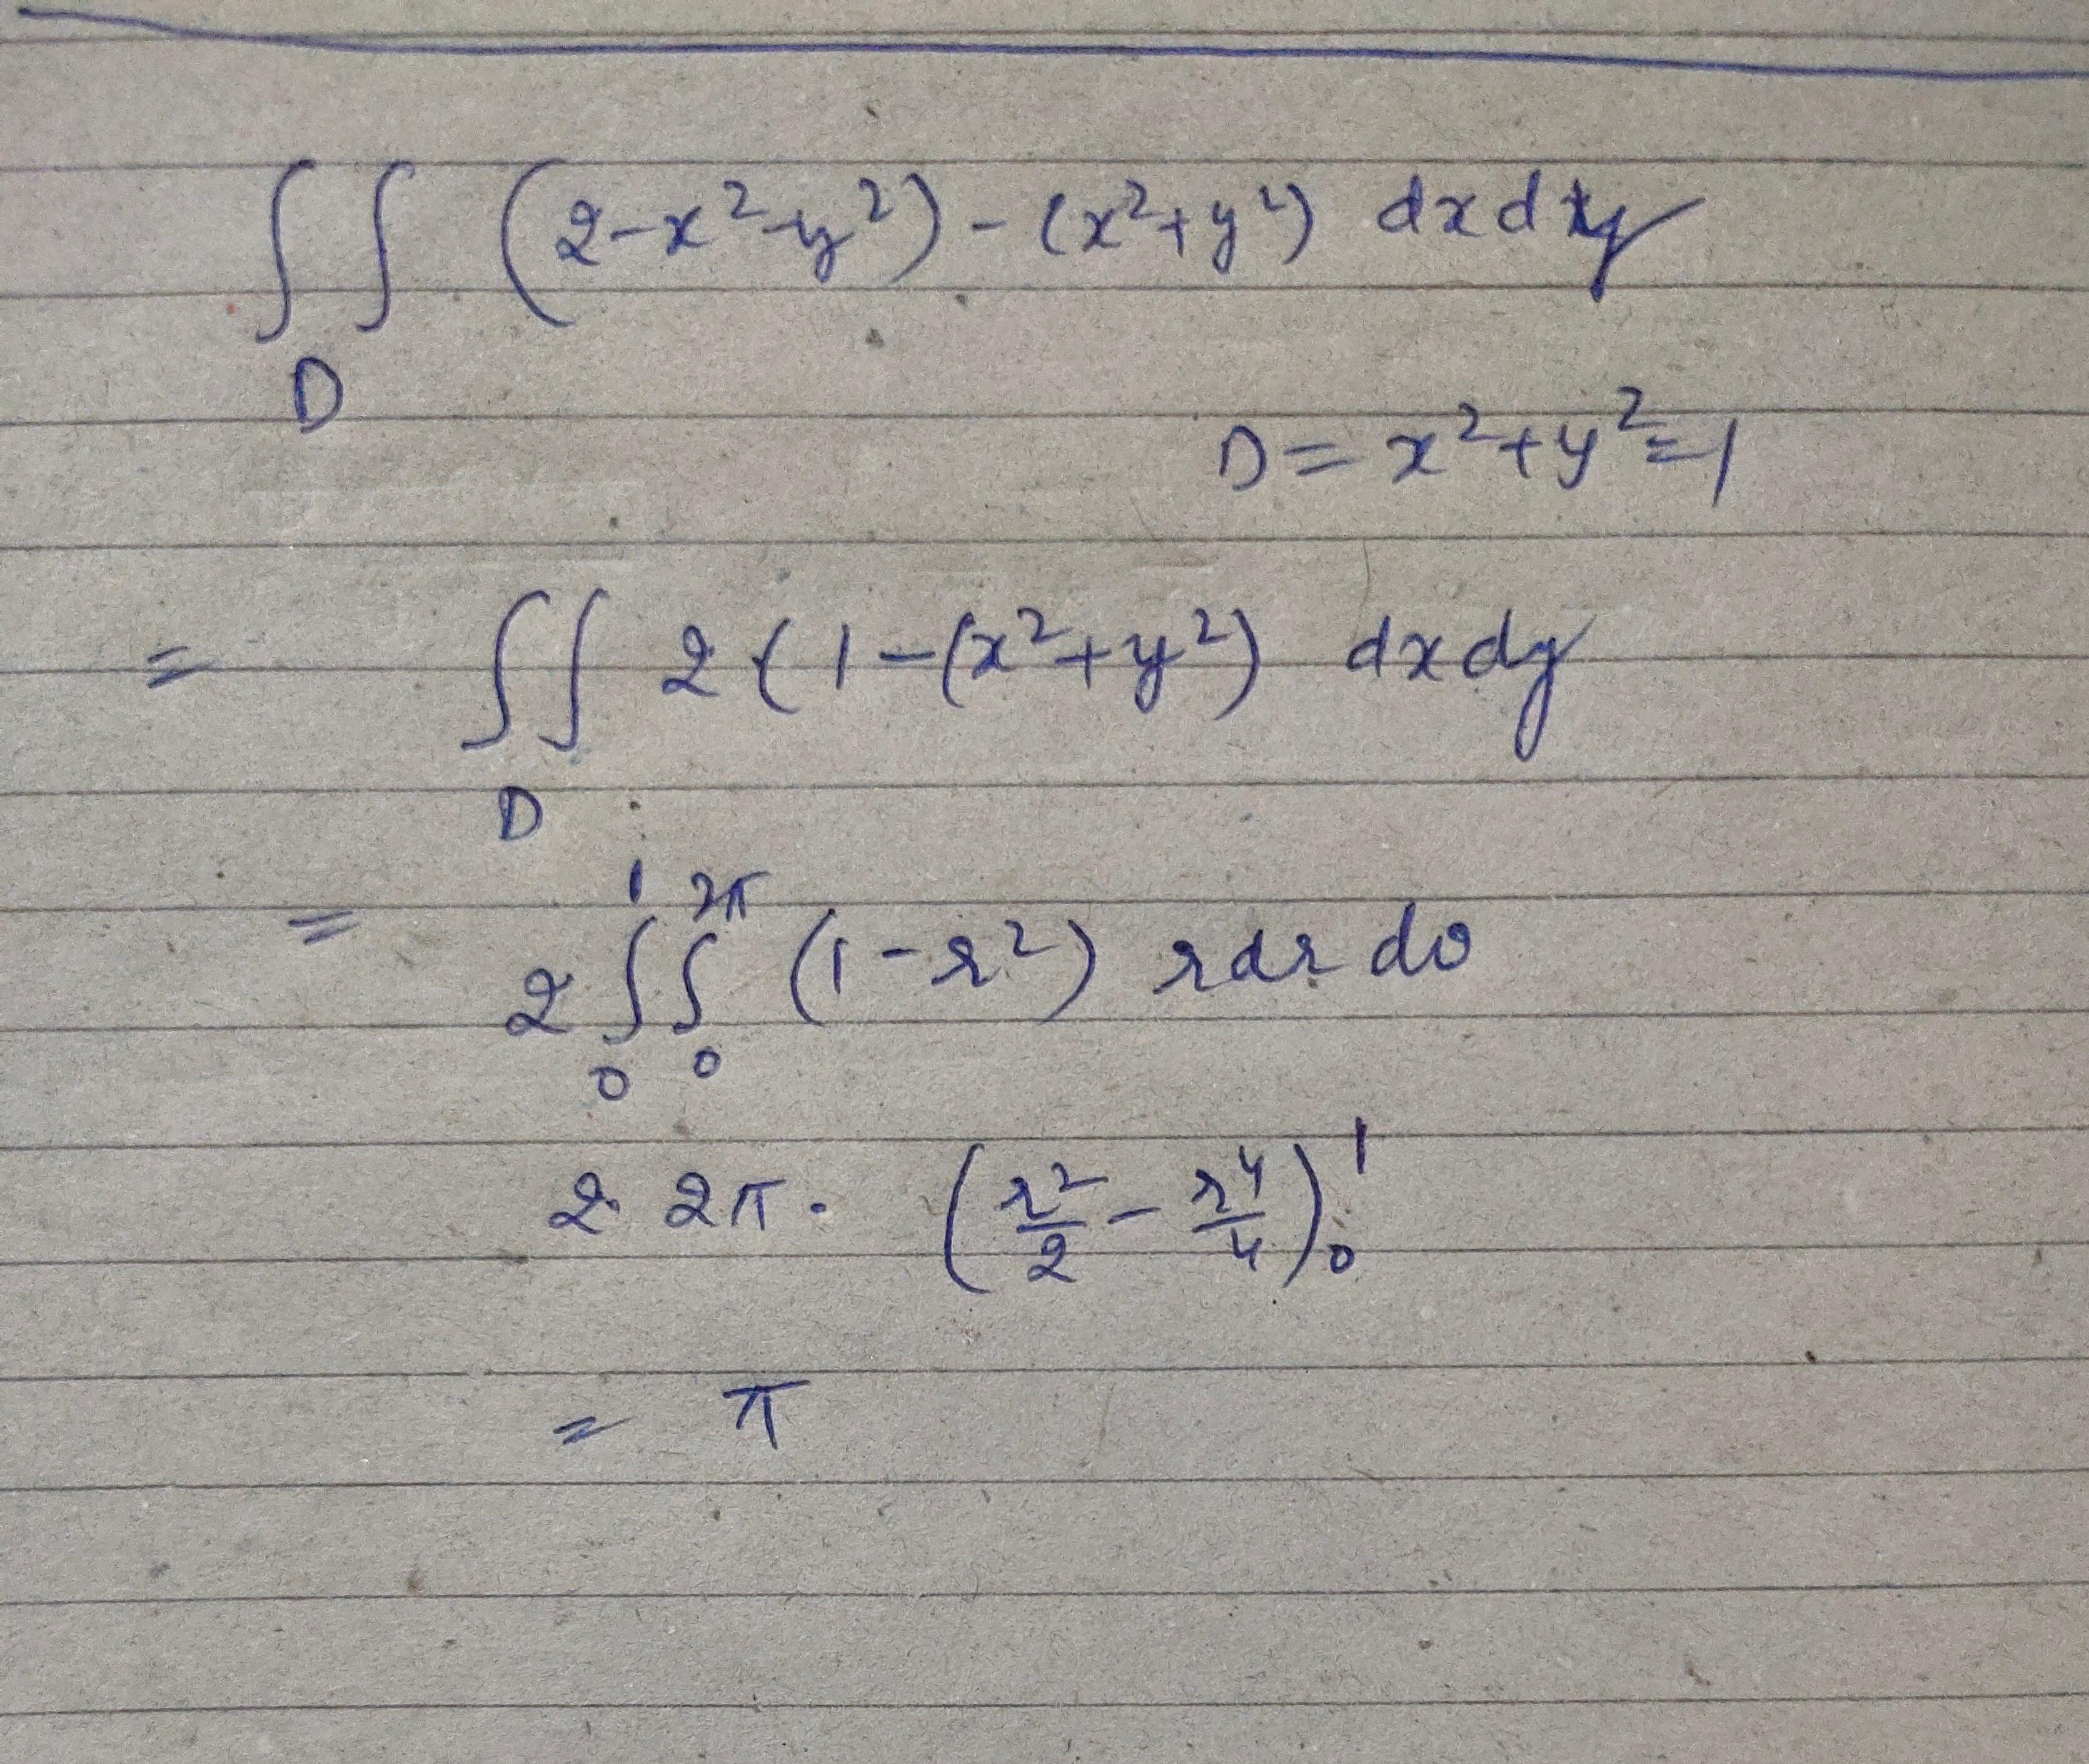 ∫∫ (2-x²-y²) - (x²+y²) dxdy
D
D = x²+y²=1
= ∫∫ 2(1-(x²+y²) dxdy
D
= 2 ∫₀¹ ∫₀²π (1-r²) rdr dθ
2 2π. (r²/2 - r⁴/4)₀¹
= π